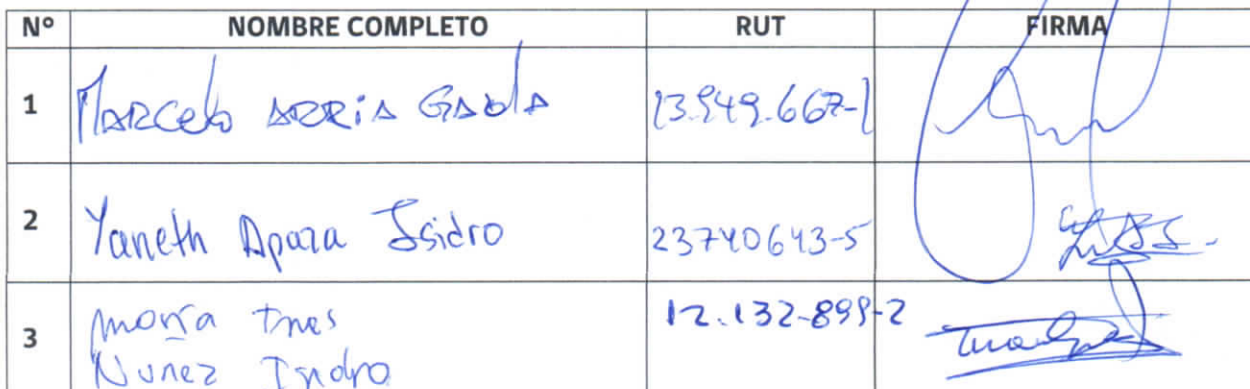 Nº NOMBRE COMPLETO RUT FIRMA
1 Marcelo ARRIA GAOLA 13.949.667-1
2 Yaneth Apaza Isidro 23740643-5
3 María Ines 12.132-899-2
Nunez Isidro